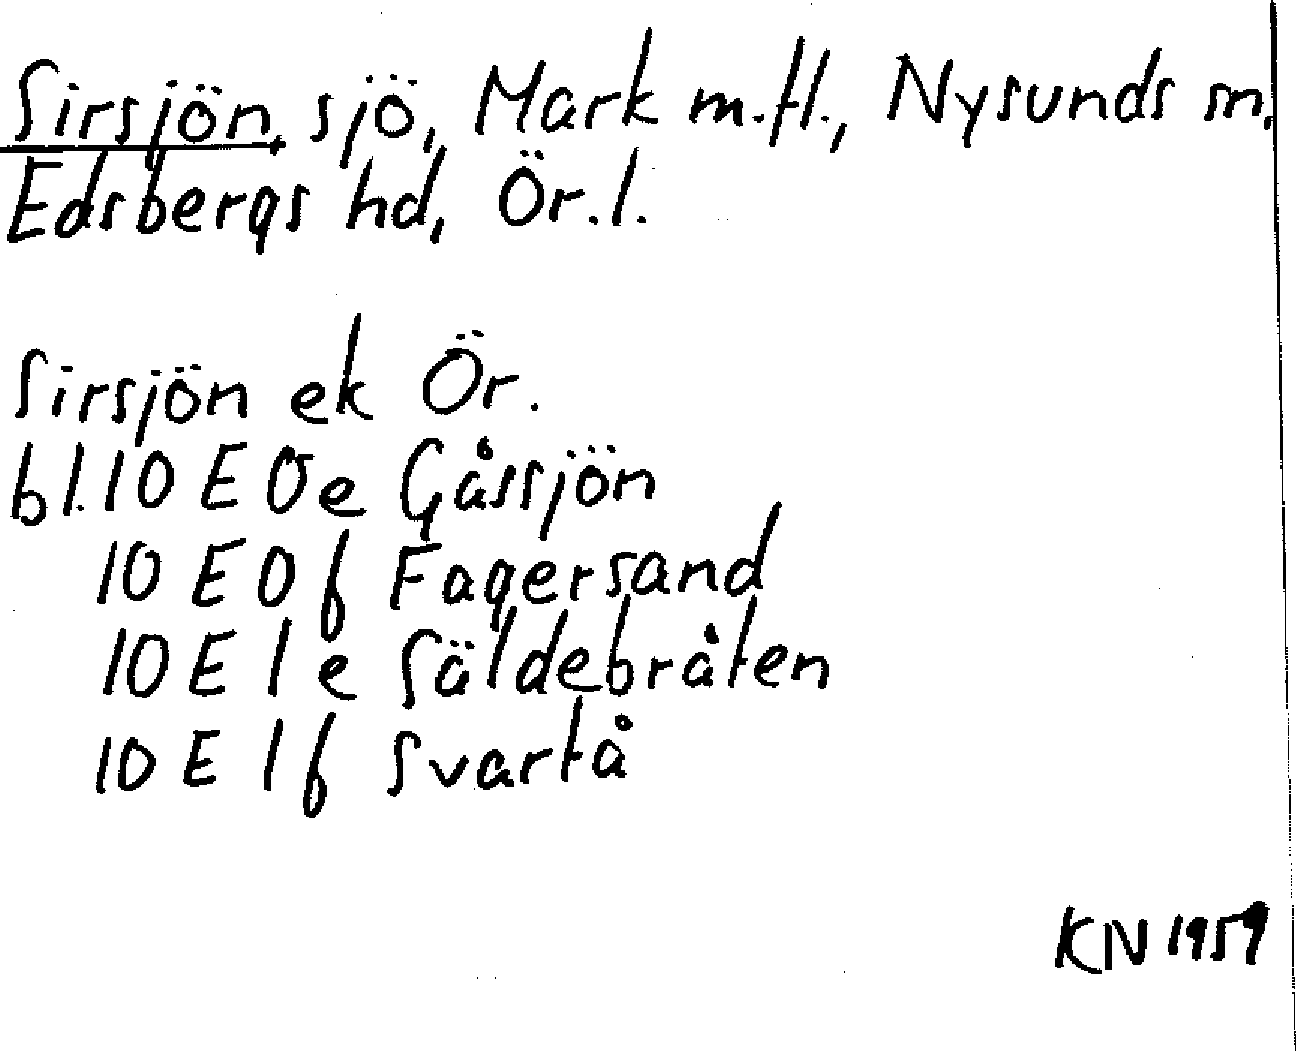 Sirsjön, sjö, Mark m.fl., Nysunds sn,
Edsbergs hd, Ör.l.
Sirsjön ek Ör.
bl. 10 E 0 e Gåssjön
10 E 0 f Fagersand
10 E 1 e Säldebråten
10 E 1 f Svartå
KN 1959